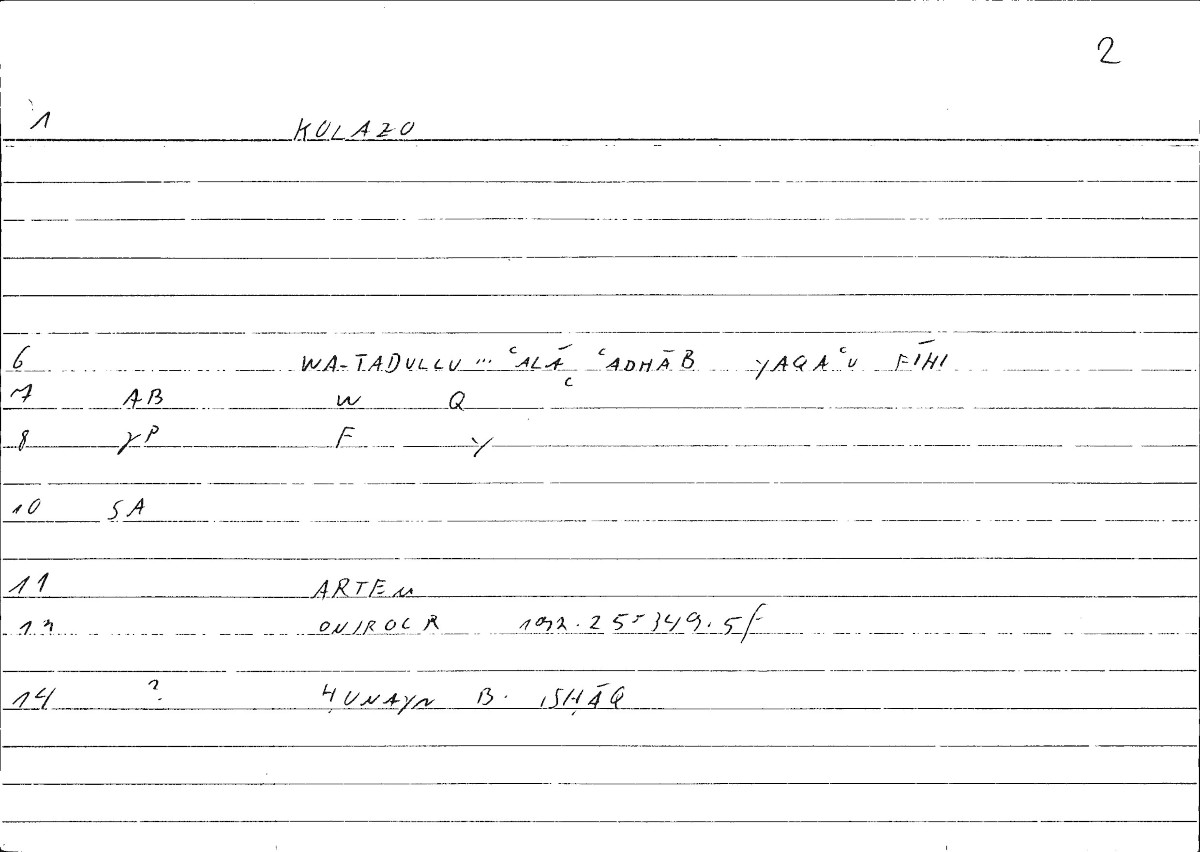 2
1 KOLAZO
6 WA-TADULLU ... ʿALĀ ʿADHĀB YAQAʿU FĪHI
7 AB W Q ʿ
8 γP F Y
10 SA
11 ARTEM
ONIROCR 25=349.5f
14 ? ḤUNAYN B. ISḤĀQ